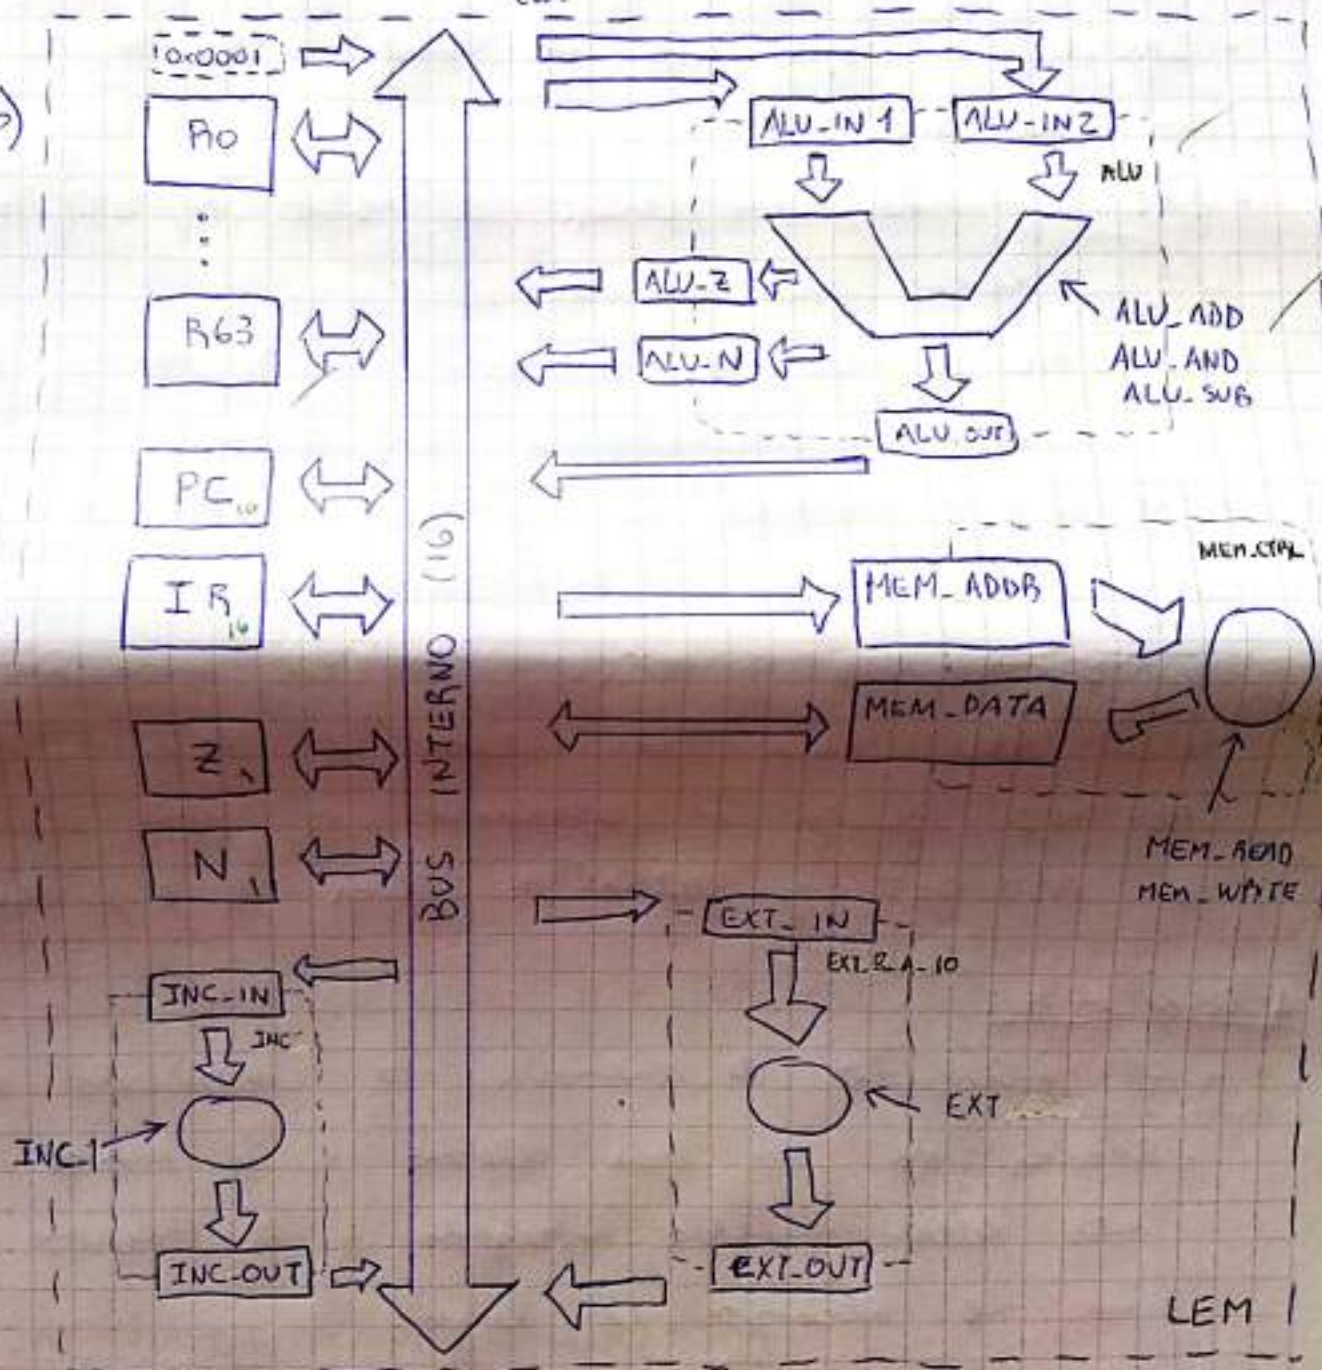 0x0001
R0
R63
PC 10
IR 16
Z 1
N 1
INC_IN
INC
INC_1
INC_OUT
BUS INTERNO (16)
ALU_IN 1
ALU_IN2
ALU
ALU_Z
ALU_N
ALU_ADD
ALU_AND
ALU_SUB
ALU_OUT
MEM_CTRL
MEM_ADDR
MEM_DATA
MEM_READ
MEM_WRITE
EXT_IN
EXT
EXT_OUT
LEM